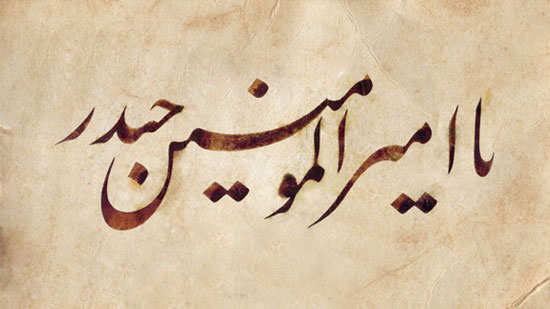 یا امیرالمومنین حیدر